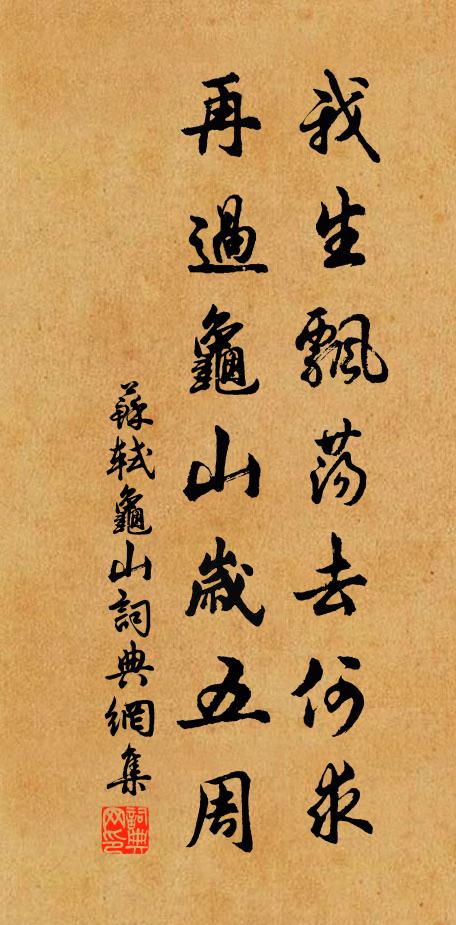 我生飄蕩去何求
再過龜山歲五周
蘇軾龜山詞典網集
詞典网印